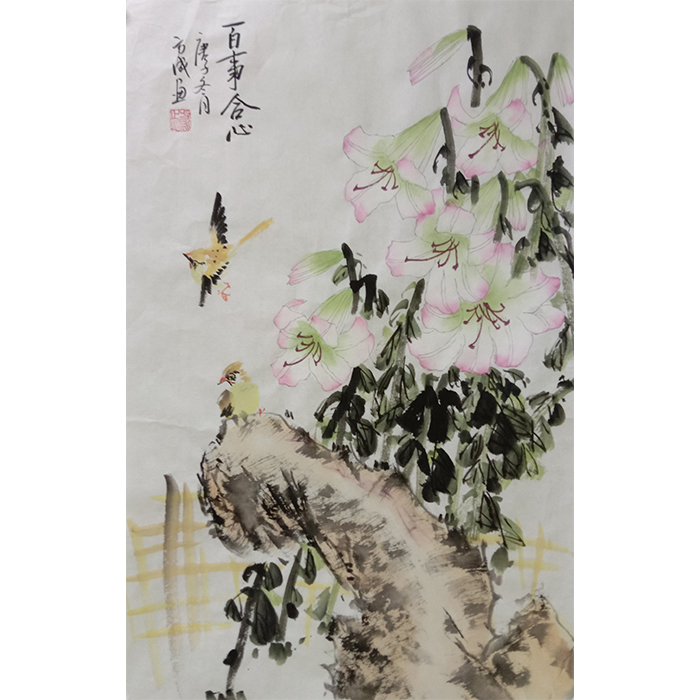 百事合心
庚子冬月
方成画